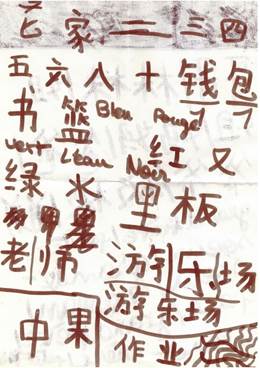 家 二 三 四
五 六 八 十 钱 包
书 篮 Bleu Rouge
vert L'eau Noir 红 又
绿 水 里 板
老师 游乐场
游乐场
中 果 作业